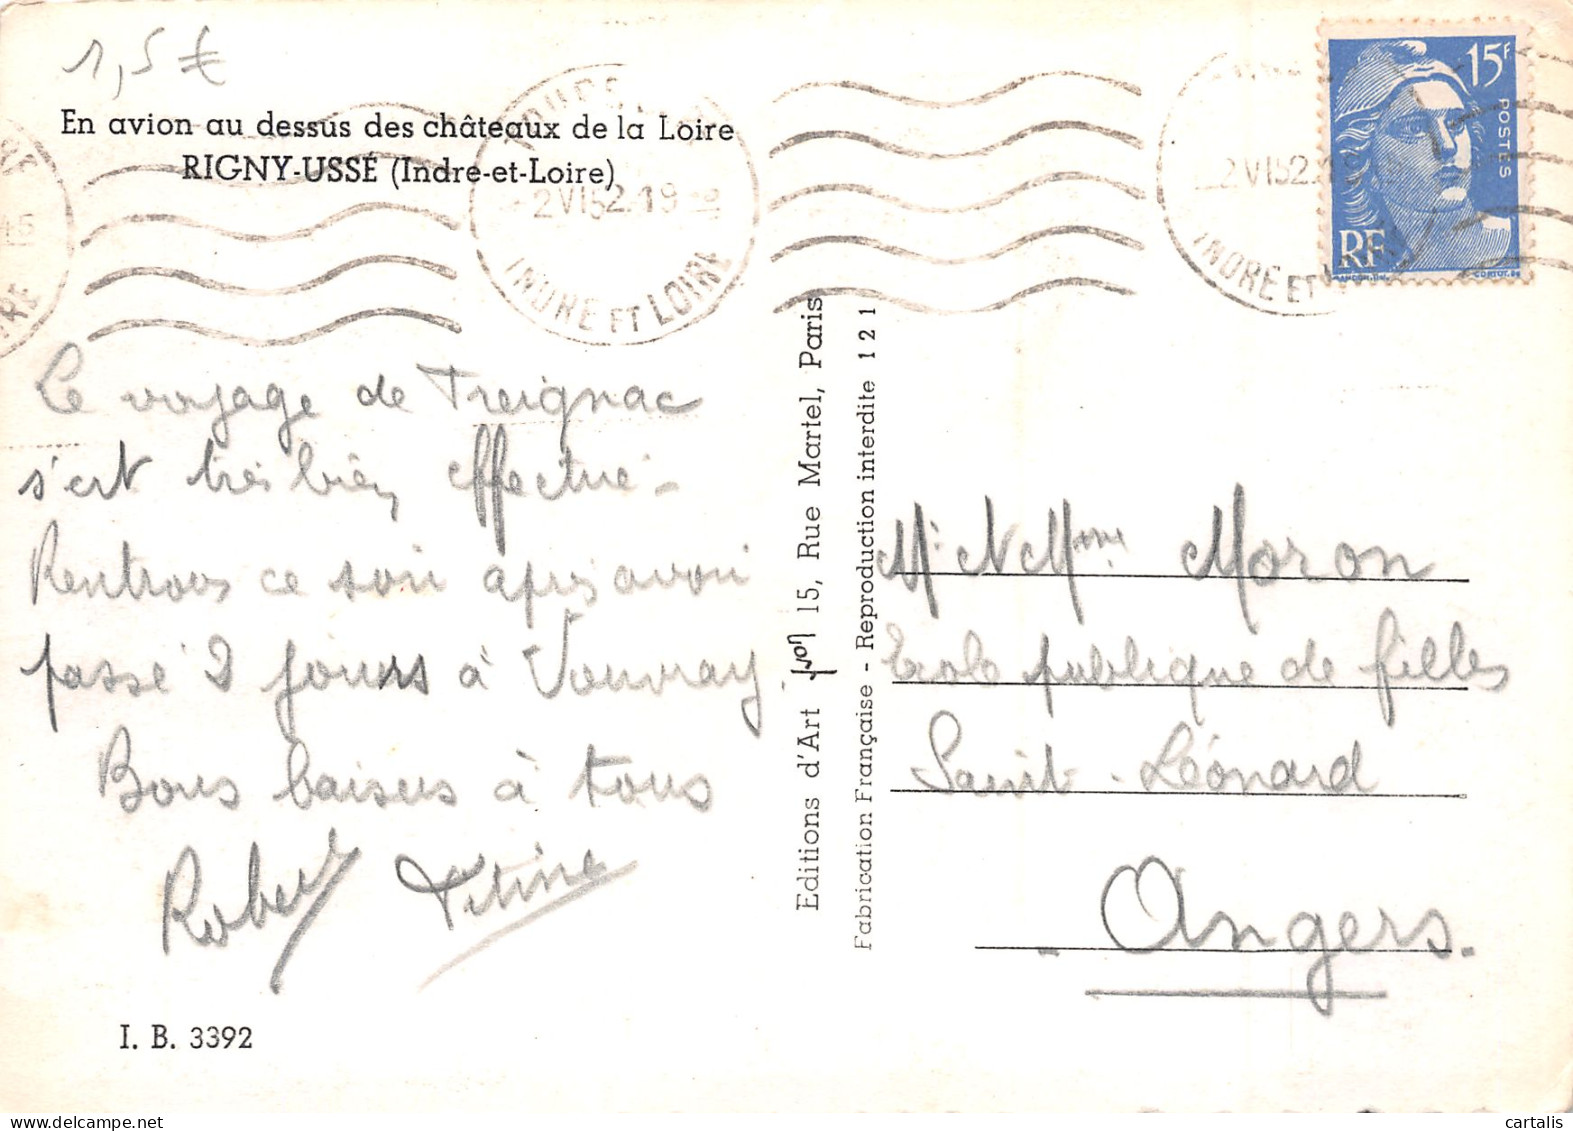 1,5 €
En avion au dessus des châteaux de la Loire
RIGNY-USSÉ (Indre-et-Loire)
2 VI 52. 19
INDRE ET LOIRE
2 VI 52.
INDRE ET
15F
POSTES
RF
Le voyage de Treignac
s'est très bien effectué -
Rentrons ce soir après avoir
passé 2 jours à Vouvray.
Bons baisers à tous
Robert Titine
I. B. 3392
Editions d'Art Yvon 15, Rue Martel, Paris
Fabrication Française - Reproduction interdite 121
Mr et Mme Moron
Ecole publique de filles
Saint-Léonard
Angers.
cartalis